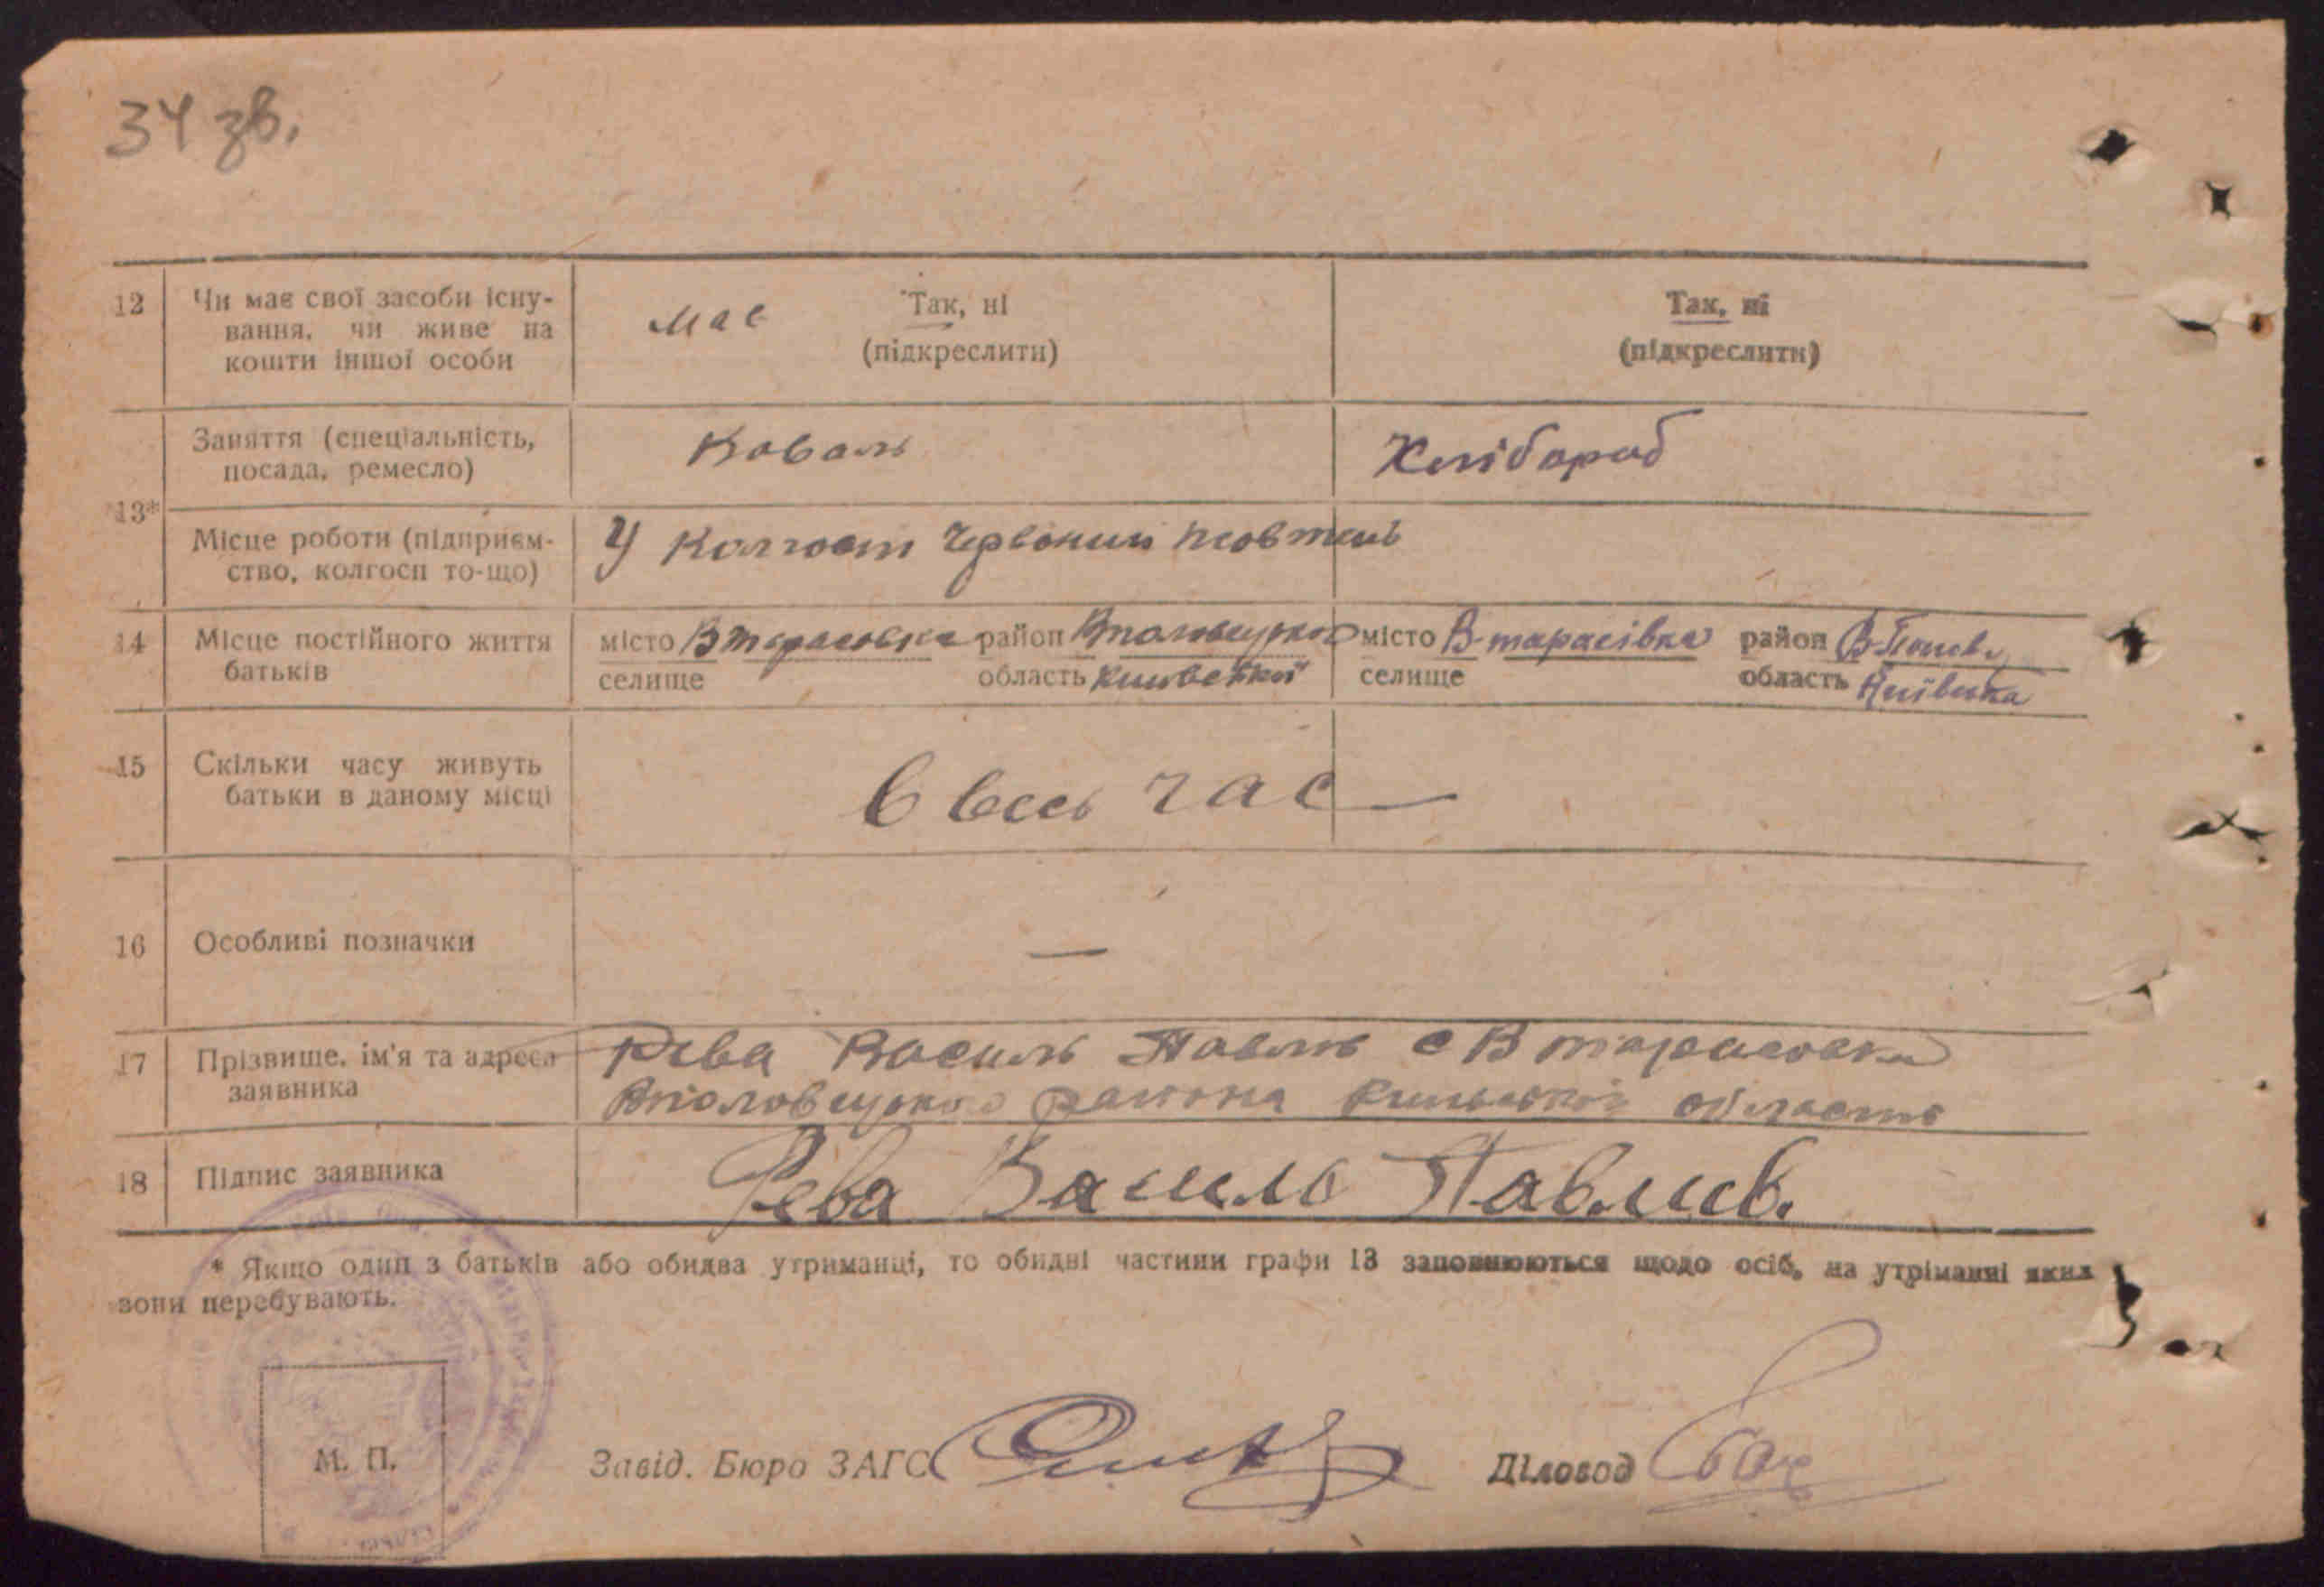 34 зв.
12 Чи має свої засоби існу-
вання, чи живе на
кошти іншої особи
має Так, ні
(підкреслити)
Так, ні
(підкреслити)
13*
Заняття (спеціальність,
посада, ремесло)
Коваль
Хлібороб
Місце роботи (підприєм-
ство, колгосп то-що)
У Колгоспі Червоний жовтень
14 Місце постійного життя
батьків
місто В тарасовка район
селище область
місто В-тарасівка район
селище область Київська
15 Скільки часу живуть
батьки в даному місці
ввесь час —
16 Особливі позначки
—
17 Прізвише, ім'я та адреса
заявника
Рева Василь Павлів с В тарасовка
района області
18 Підпис заявника
Рева Василь Павлів.
* Якщо один з батьків або обидва утриманці, то обидві частини графи 13 заповнюються щодо осіб, на утріманні яких
вони перебувають.
М. П.
Завід. Бюро ЗАГС
Діловод